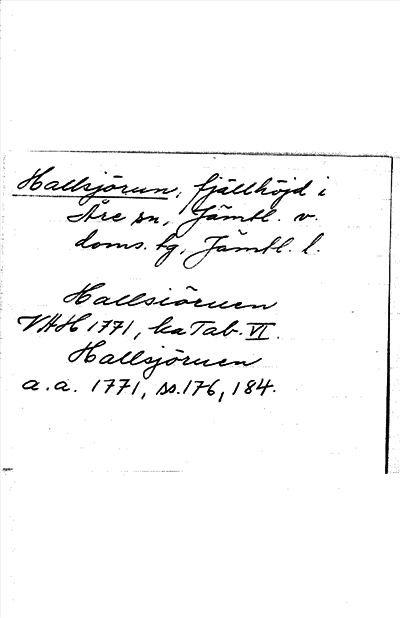 Hallsjörun, fjällhöjd i
Åre sn, Jämtl. v.
doms. tg, Jämtl. l.
Hallsiöruen
VAH 1771, ka Tab. VI.
Hallsjöruen
a.a. 1771, ss. 176, 184.